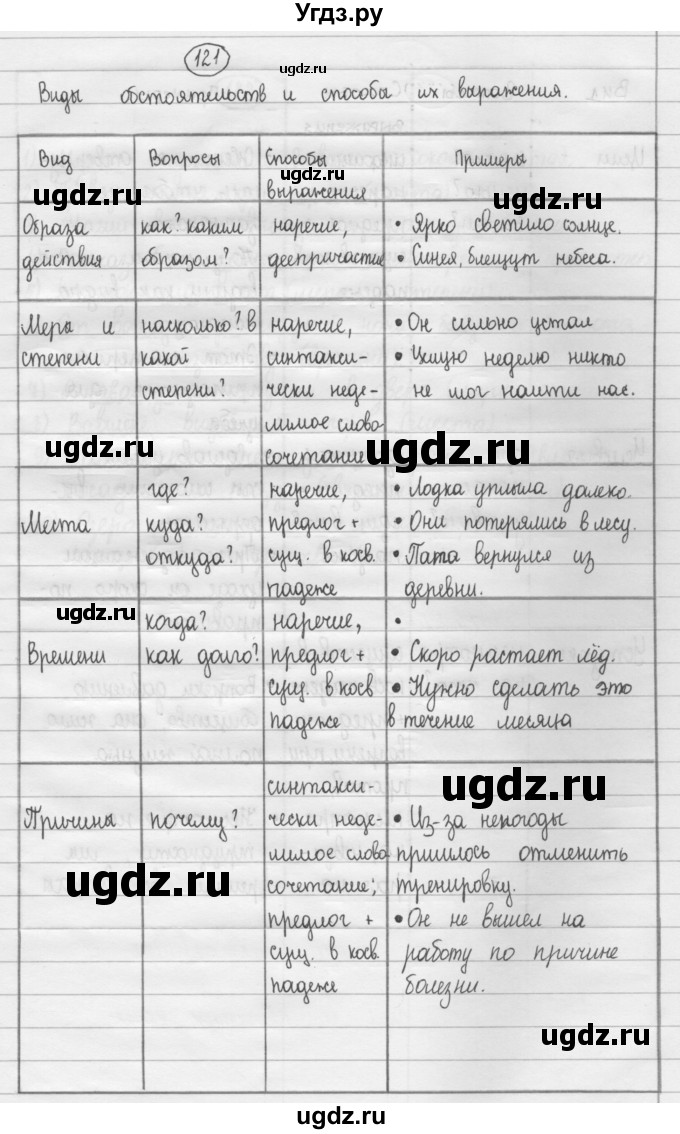 Угдз.ру
121
ugdz.ru
Виды обстоятельств и способы их выражения.
Вид
Вопросы
Способы
выражения
Примеры
ugdz.ru
ugdz.ru
Образа
действия
как? каким
образом?
наречие,
деепричастие
• Ярко светило солнце.
• Синея, блещут небеса.
Меры и
степени
насколько? в
какой
степени?
наречие,
синтакси-
чески неде-
лимое слово
сочетание
• Он сильно устал
• Целую неделю никто
не мог найти нас.
ugdz.ru
ugdz.ru
Места
где?
куда?
откуда?
наречие,
предлог +
сущ. в косв.
падеже
• Лодка уплыла далеко.
• Они потерялись в лесу.
• Папа вернулся из
деревни.
ugdz.ru
Времени
когда?
как долго?
наречие,
предлог +
сущ. в косв
падеже
•
• Скоро растает лёд.
• Нужно сделать это
в течение месяца
ugdz.ru
Причины
почему?
синтакси-
чески неде-
лимое слово
сочетание;
предлог +
сущ. в косв.
падеже
• Из-за непогоды
пришлось отменить
тренировку.
• Он не вышел на
работу по причине
болезни.
ugdz.ru
ugdz.ru
ugdz.ru